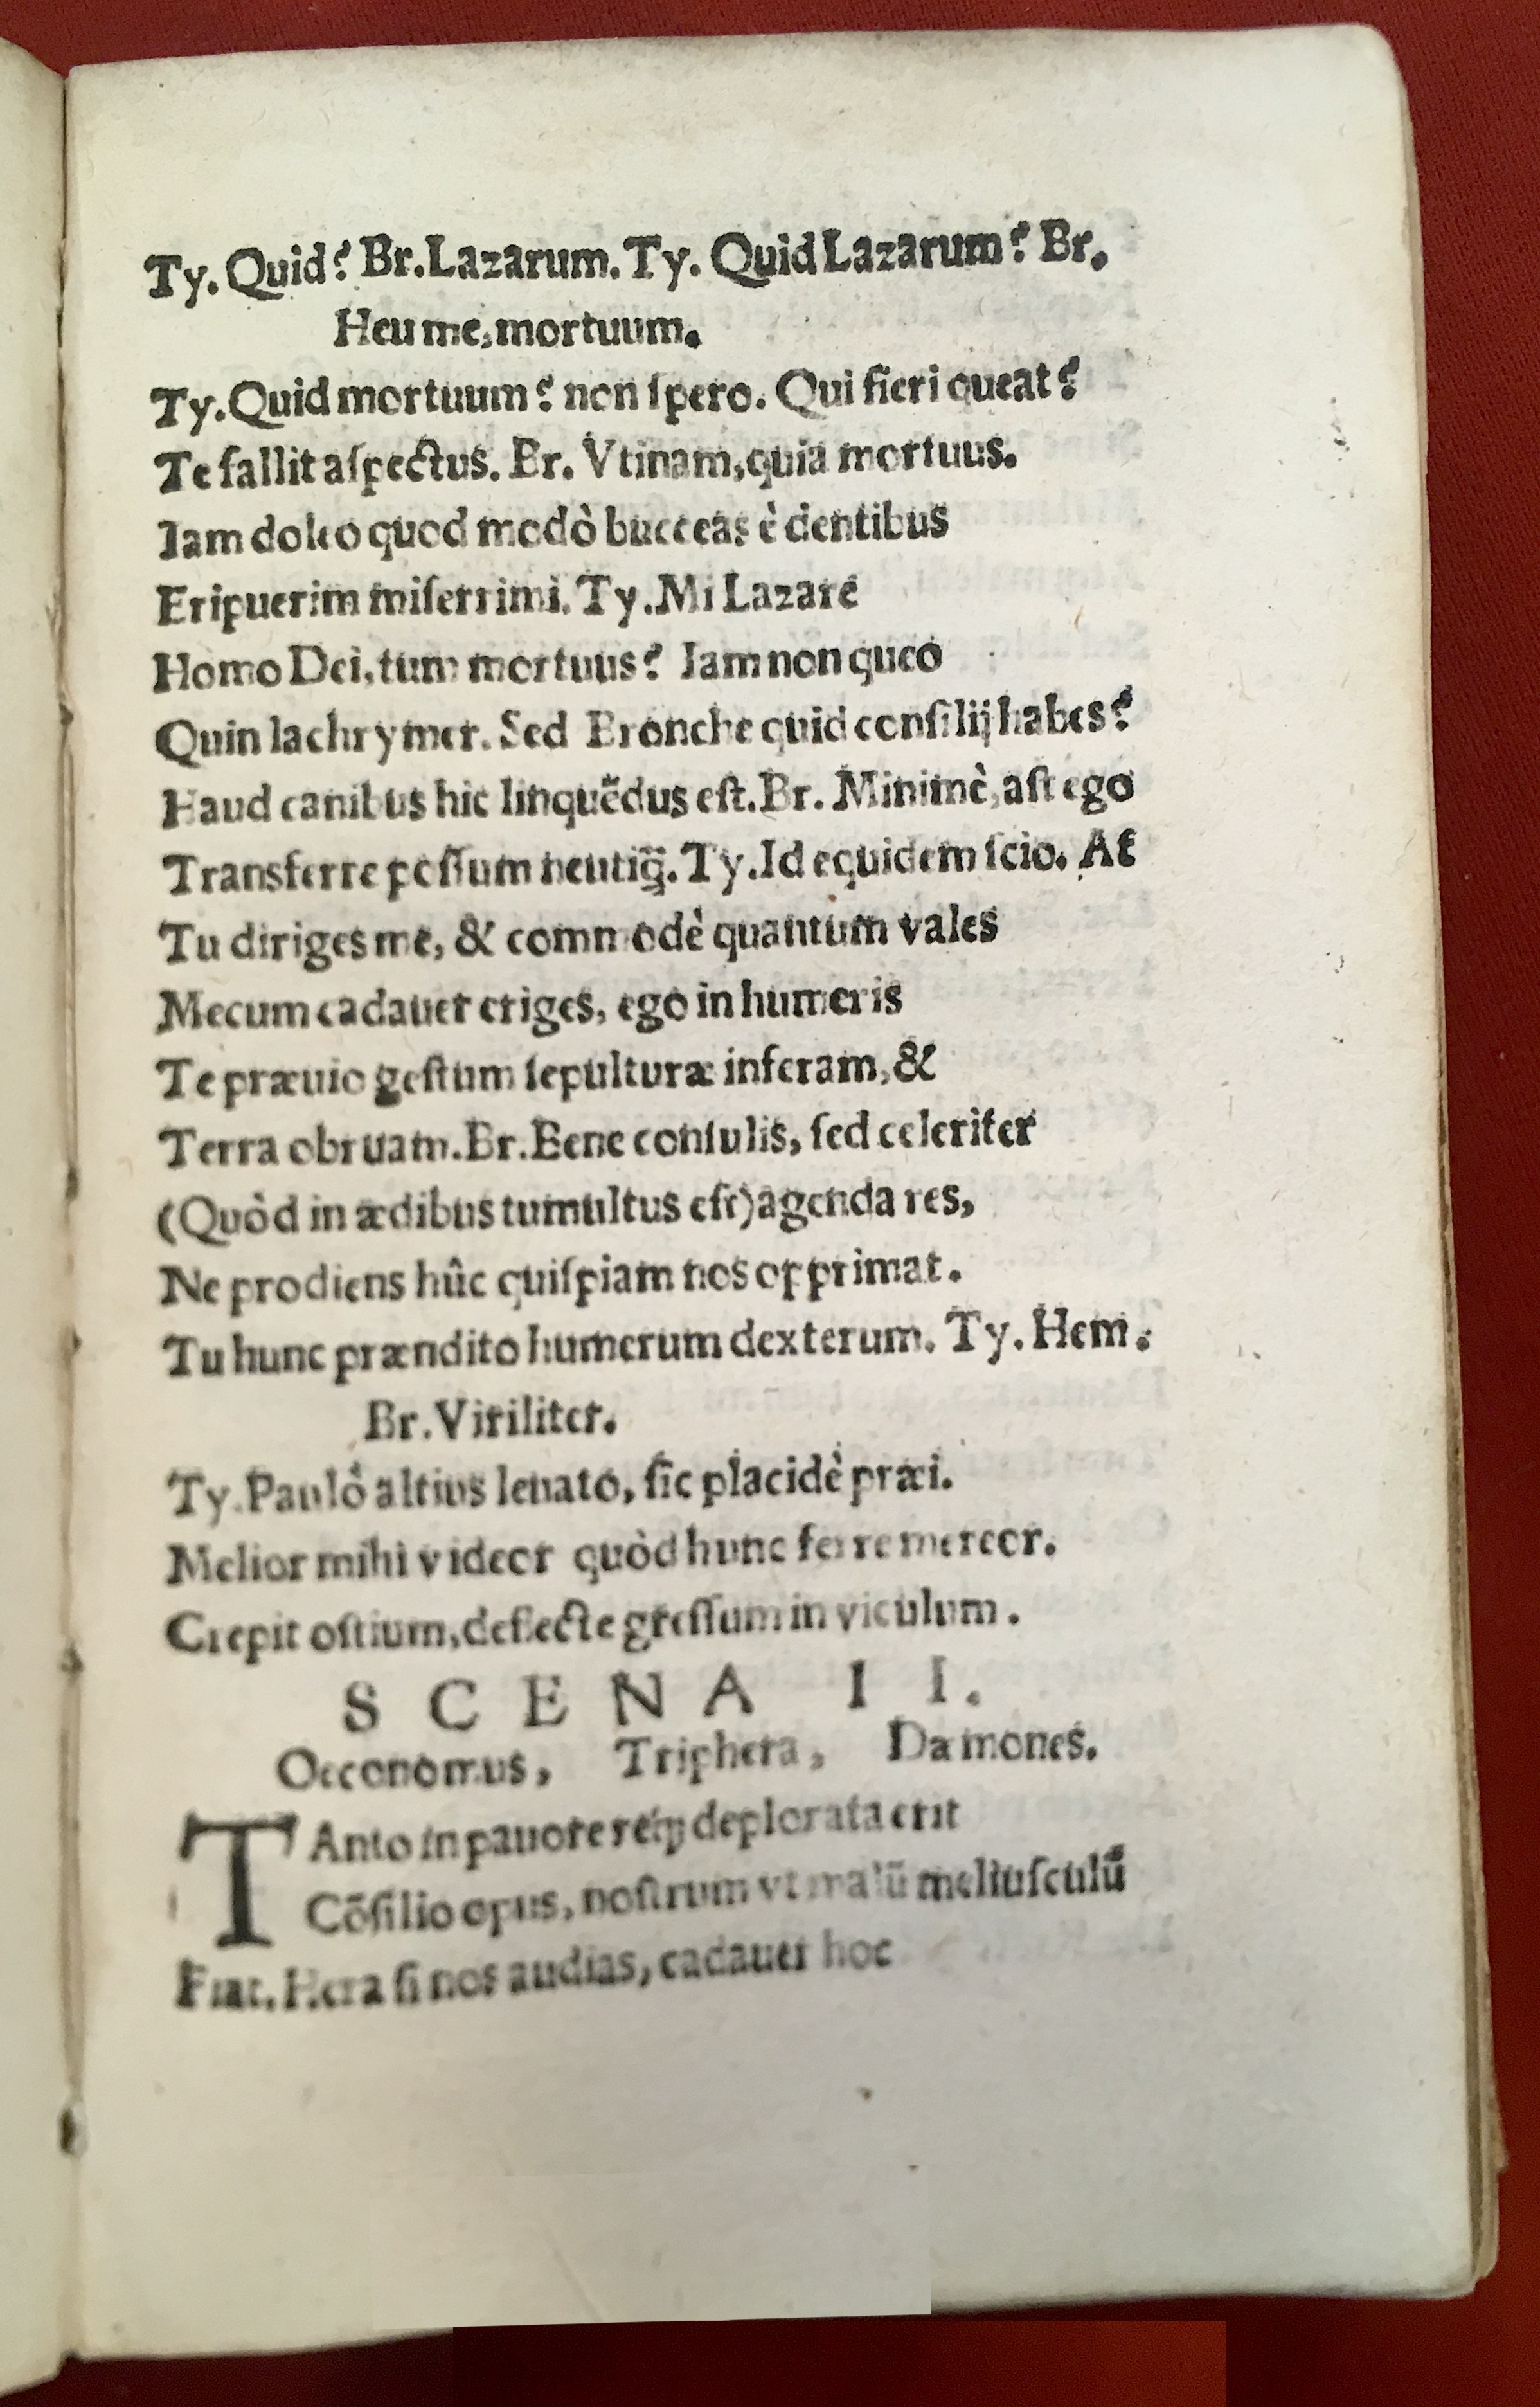 Ty. Quid? Br. Lazarum. Ty. Quid Lazarum? Br.
Heu me, mortuum.
Ty. Quid mortuum? non ſpero. Qui fieri queat?
Te fallit aſpectus. Br. Vtinam, quia mortuus.
Iam doleo quod modò bucceas è dentibus
Eripuerim miſerrimi. Ty. Mi Lazare
Homo Dei, tum mortuus? Iam non queo
Quin lachrymer. Sed Bronche quid conſilij habes?
Haud canibus hic linquẽdus eſt. Br. Minimè, aſt ego
Transferre poſſum neutiq̃. Ty. Id equidem ſcio. At
Tu diriges me, & commodè quantum vales
Mecum cadauer eriges, ego in humeris
Te præuio geſtum ſepulturæ inferam, &
Terra obruam. Br. Bene conſulis, ſed celeriter
(Quòd in ædibus tumultus eſt) agenda res,
Ne prodiens hûc quiſpiam nos opprimat.
Tu hunc prændito humerum dexterum. Ty. Hem.
Br. Viriliter.
Ty. Paulò altius leuato, ſic placidè præi.
Melior mihi videor quòd hunc ferre mereor.
Crepit oſtium, deflecte greſſum in viculum.
SCENA II.
Oeconomus, Triphera, Dæmones.
TAnto in pauore réq; deplorata erit
Cõſilio opus, noſtrum vt malũ meliuſculũ
Fiat. Hera ſi nos audias, cadauer hoc